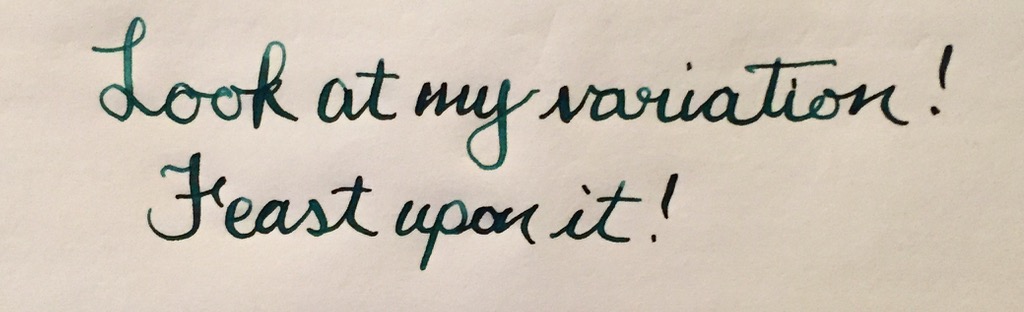 Look at my variation!
Feast upon it!